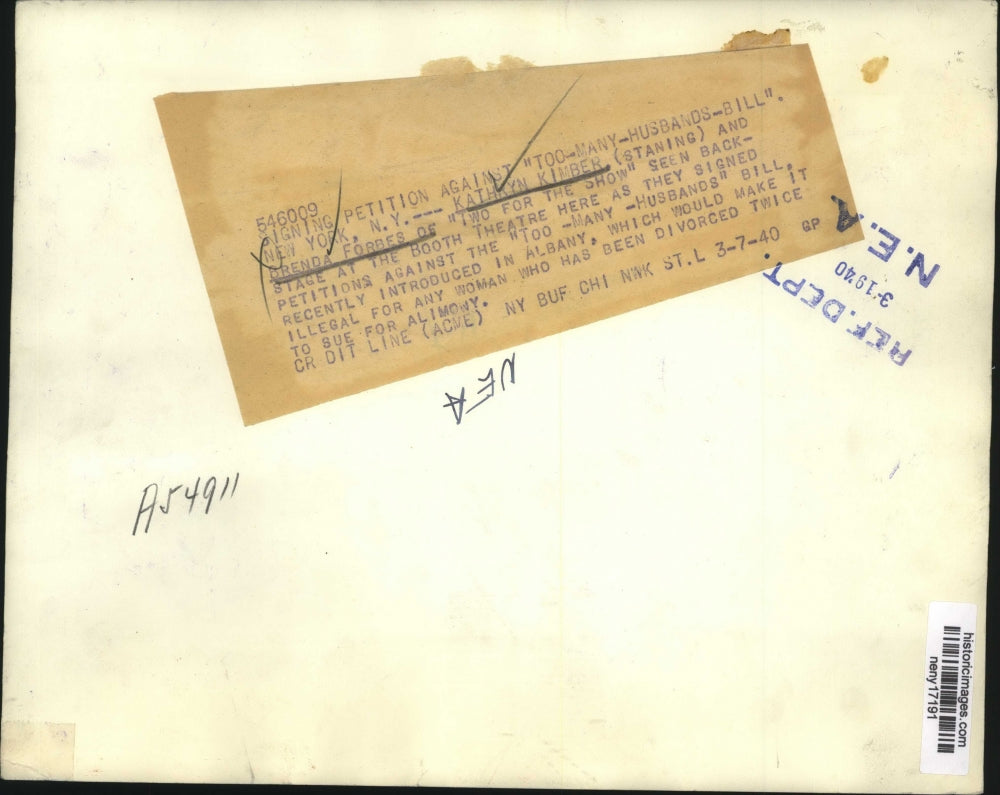 546009
SIGNING PETITION AGAINST "TOO-MANY-HUSBANDS-BILL".
NEW YORK, N.Y.--- KATHRYN KIMBER (STANING) AND
BRENDA FORBES OF "TWO FOR THE SHOW" SEEN BACK-
STAGE AT THE BOOTH THEATRE HERE AS THEY SIGNED
PETITIONS AGAINST THE "TOO -MANY -HUSBANDS" BILL,
RECENTLY INTRODUCED IN ALBANY, WHICH WOULD MAKE IT
ILLEGAL FOR ANY WOMAN WHO HAS BEEN DIVORCED TWICE
TO SUE FOR ALIMONY.
CR DIT LINE (ACME) NY BUF CHI NWK ST.L 3-7-40 GP
N.E.A
3-1940
REF. DEPT.
NEA
A54911
historicimages.com
neny17191